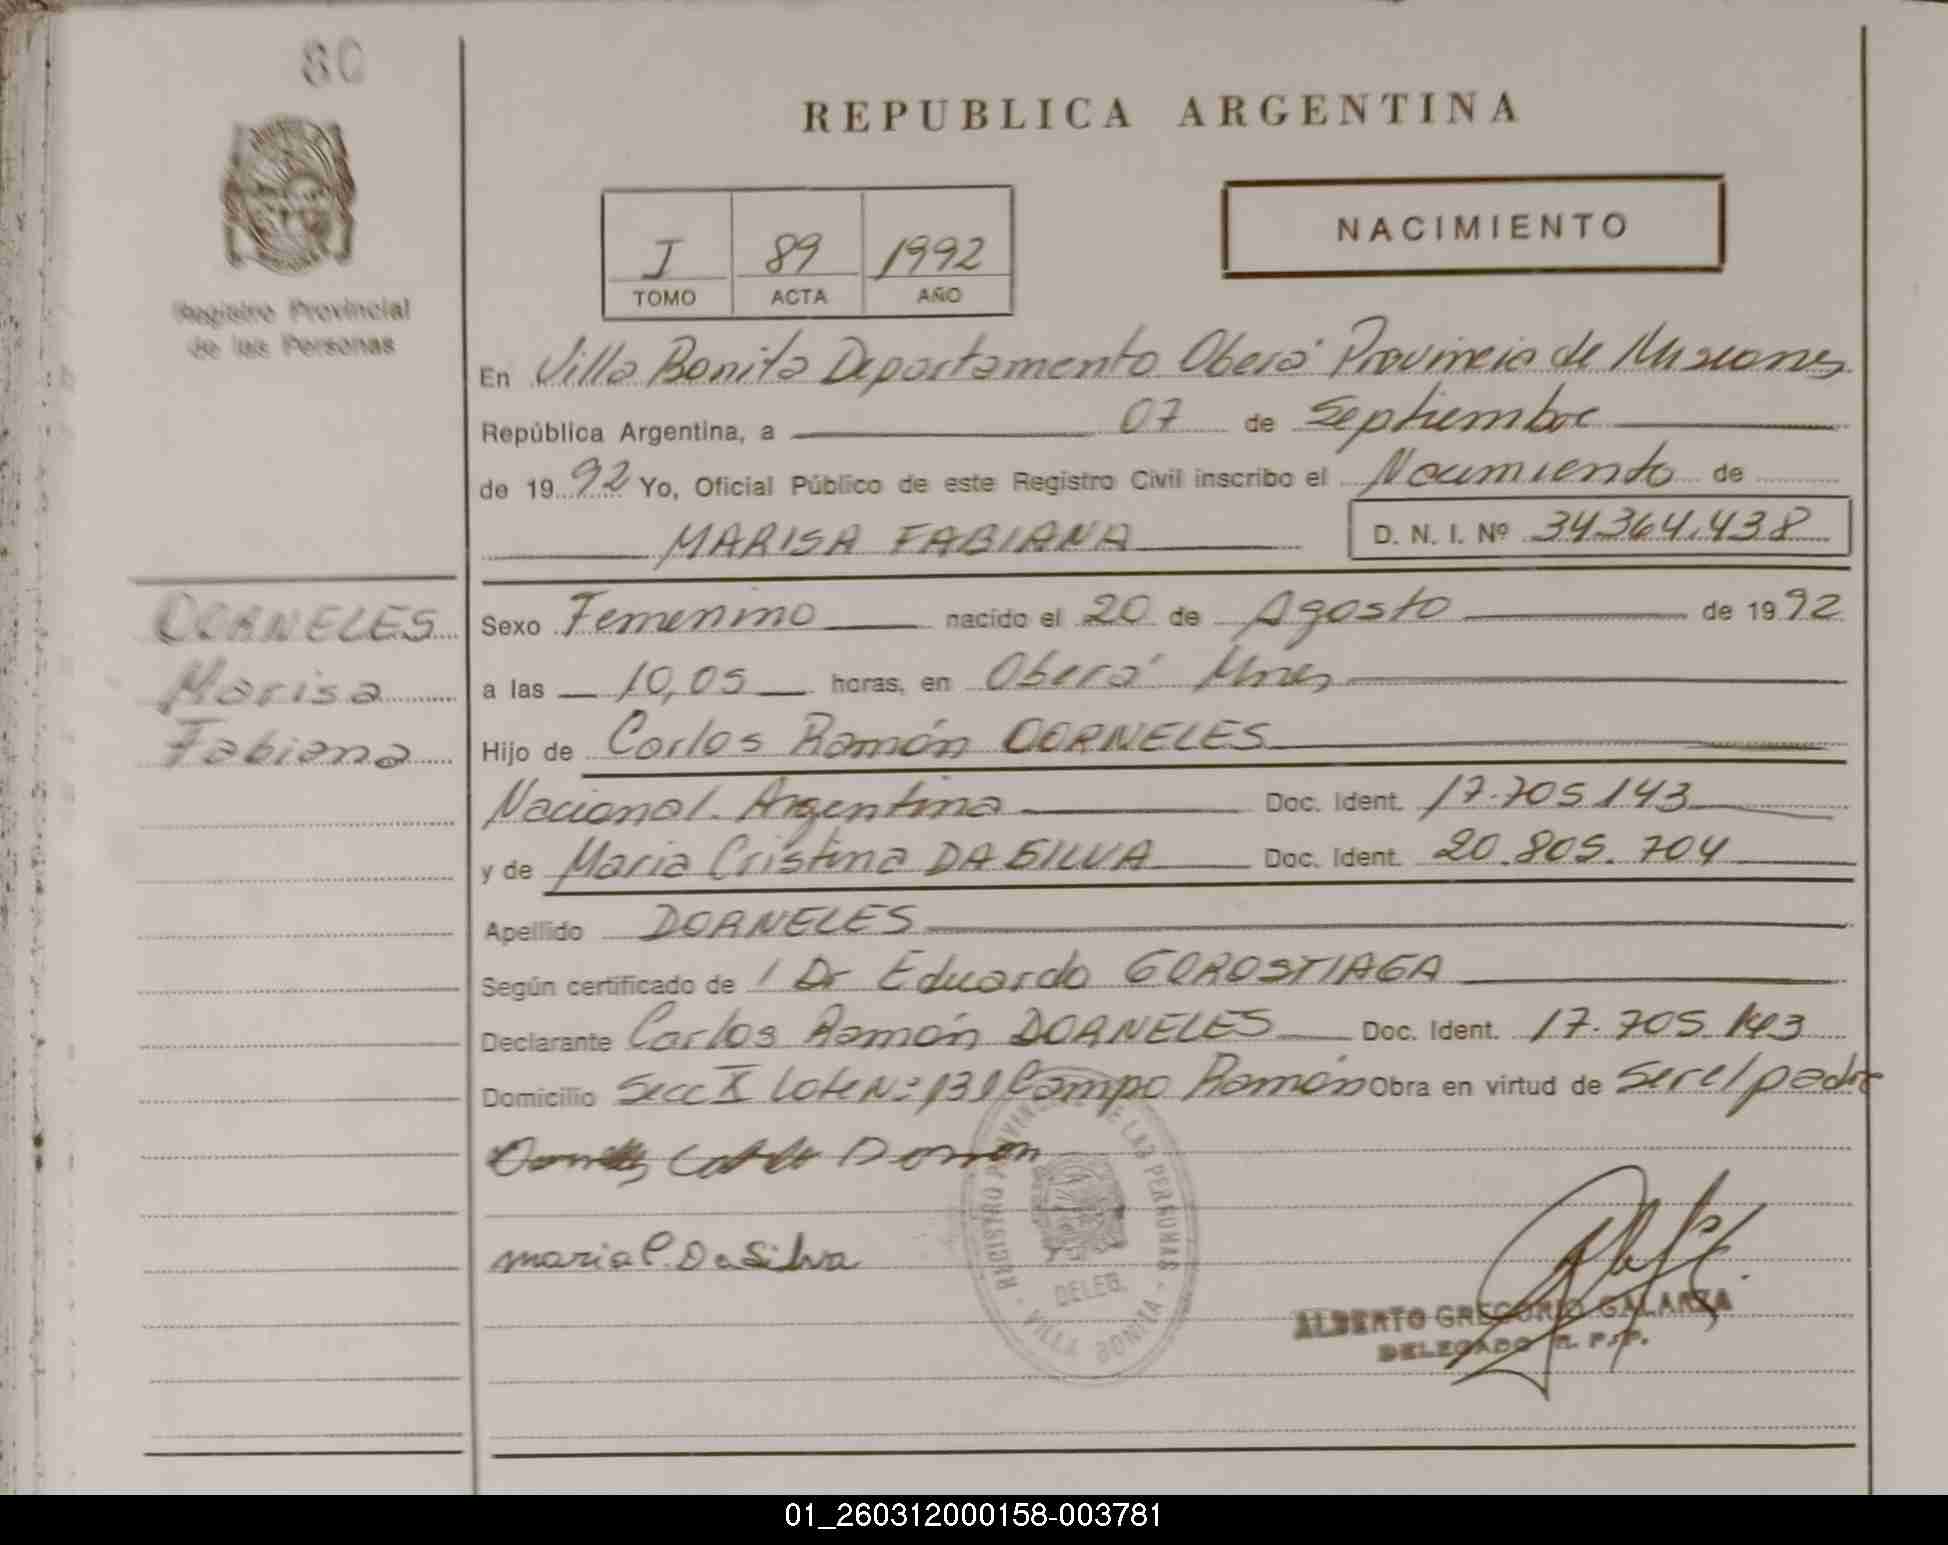 80
REPUBLICA ARGENTINA
NACIMIENTO
I 89 1992
TOMO ACTA AÑO
Registro Provincial
de las Personas
En Villa Bonita Departamento Oberá Provincia de Misiones
República Argentina, a 07 de Septiembre
de 1992 Yo, Oficial Público de este Registro Civil inscribo el Nacimiento de
MARISA FABIANA D. N. I. Nº 34.364.438
DORNELES
Marisa
Fabiana
Sexo Femenino nacido el 20 de Agosto de 1992
a las 10,05 horas, en Oberá Mnes
Hijo de Carlos Ramón DORNELES
Nacional. Argentina Doc. Ident. 17.705.143
y de Maria Cristina DA SILVA Doc. Ident. 20.805.704
Apellido DORNELES
Según certificado de / Dr Eduardo GOROSTIAGA
Declarante Carlos Ramón DORNELES Doc. Ident. 17.705.143
Domicilio Secc X Lote Nº 131 Campo Ramón Obra en virtud de Ser el padre
maria C. Da Silva
REGISTRO PROVINCIAL DE LAS PERSONAS
DELEG.
VILLA BONITA
ALBERTO GREGORIO GALARZA
DELEGADO R. P. P.
01_260312000158-003781